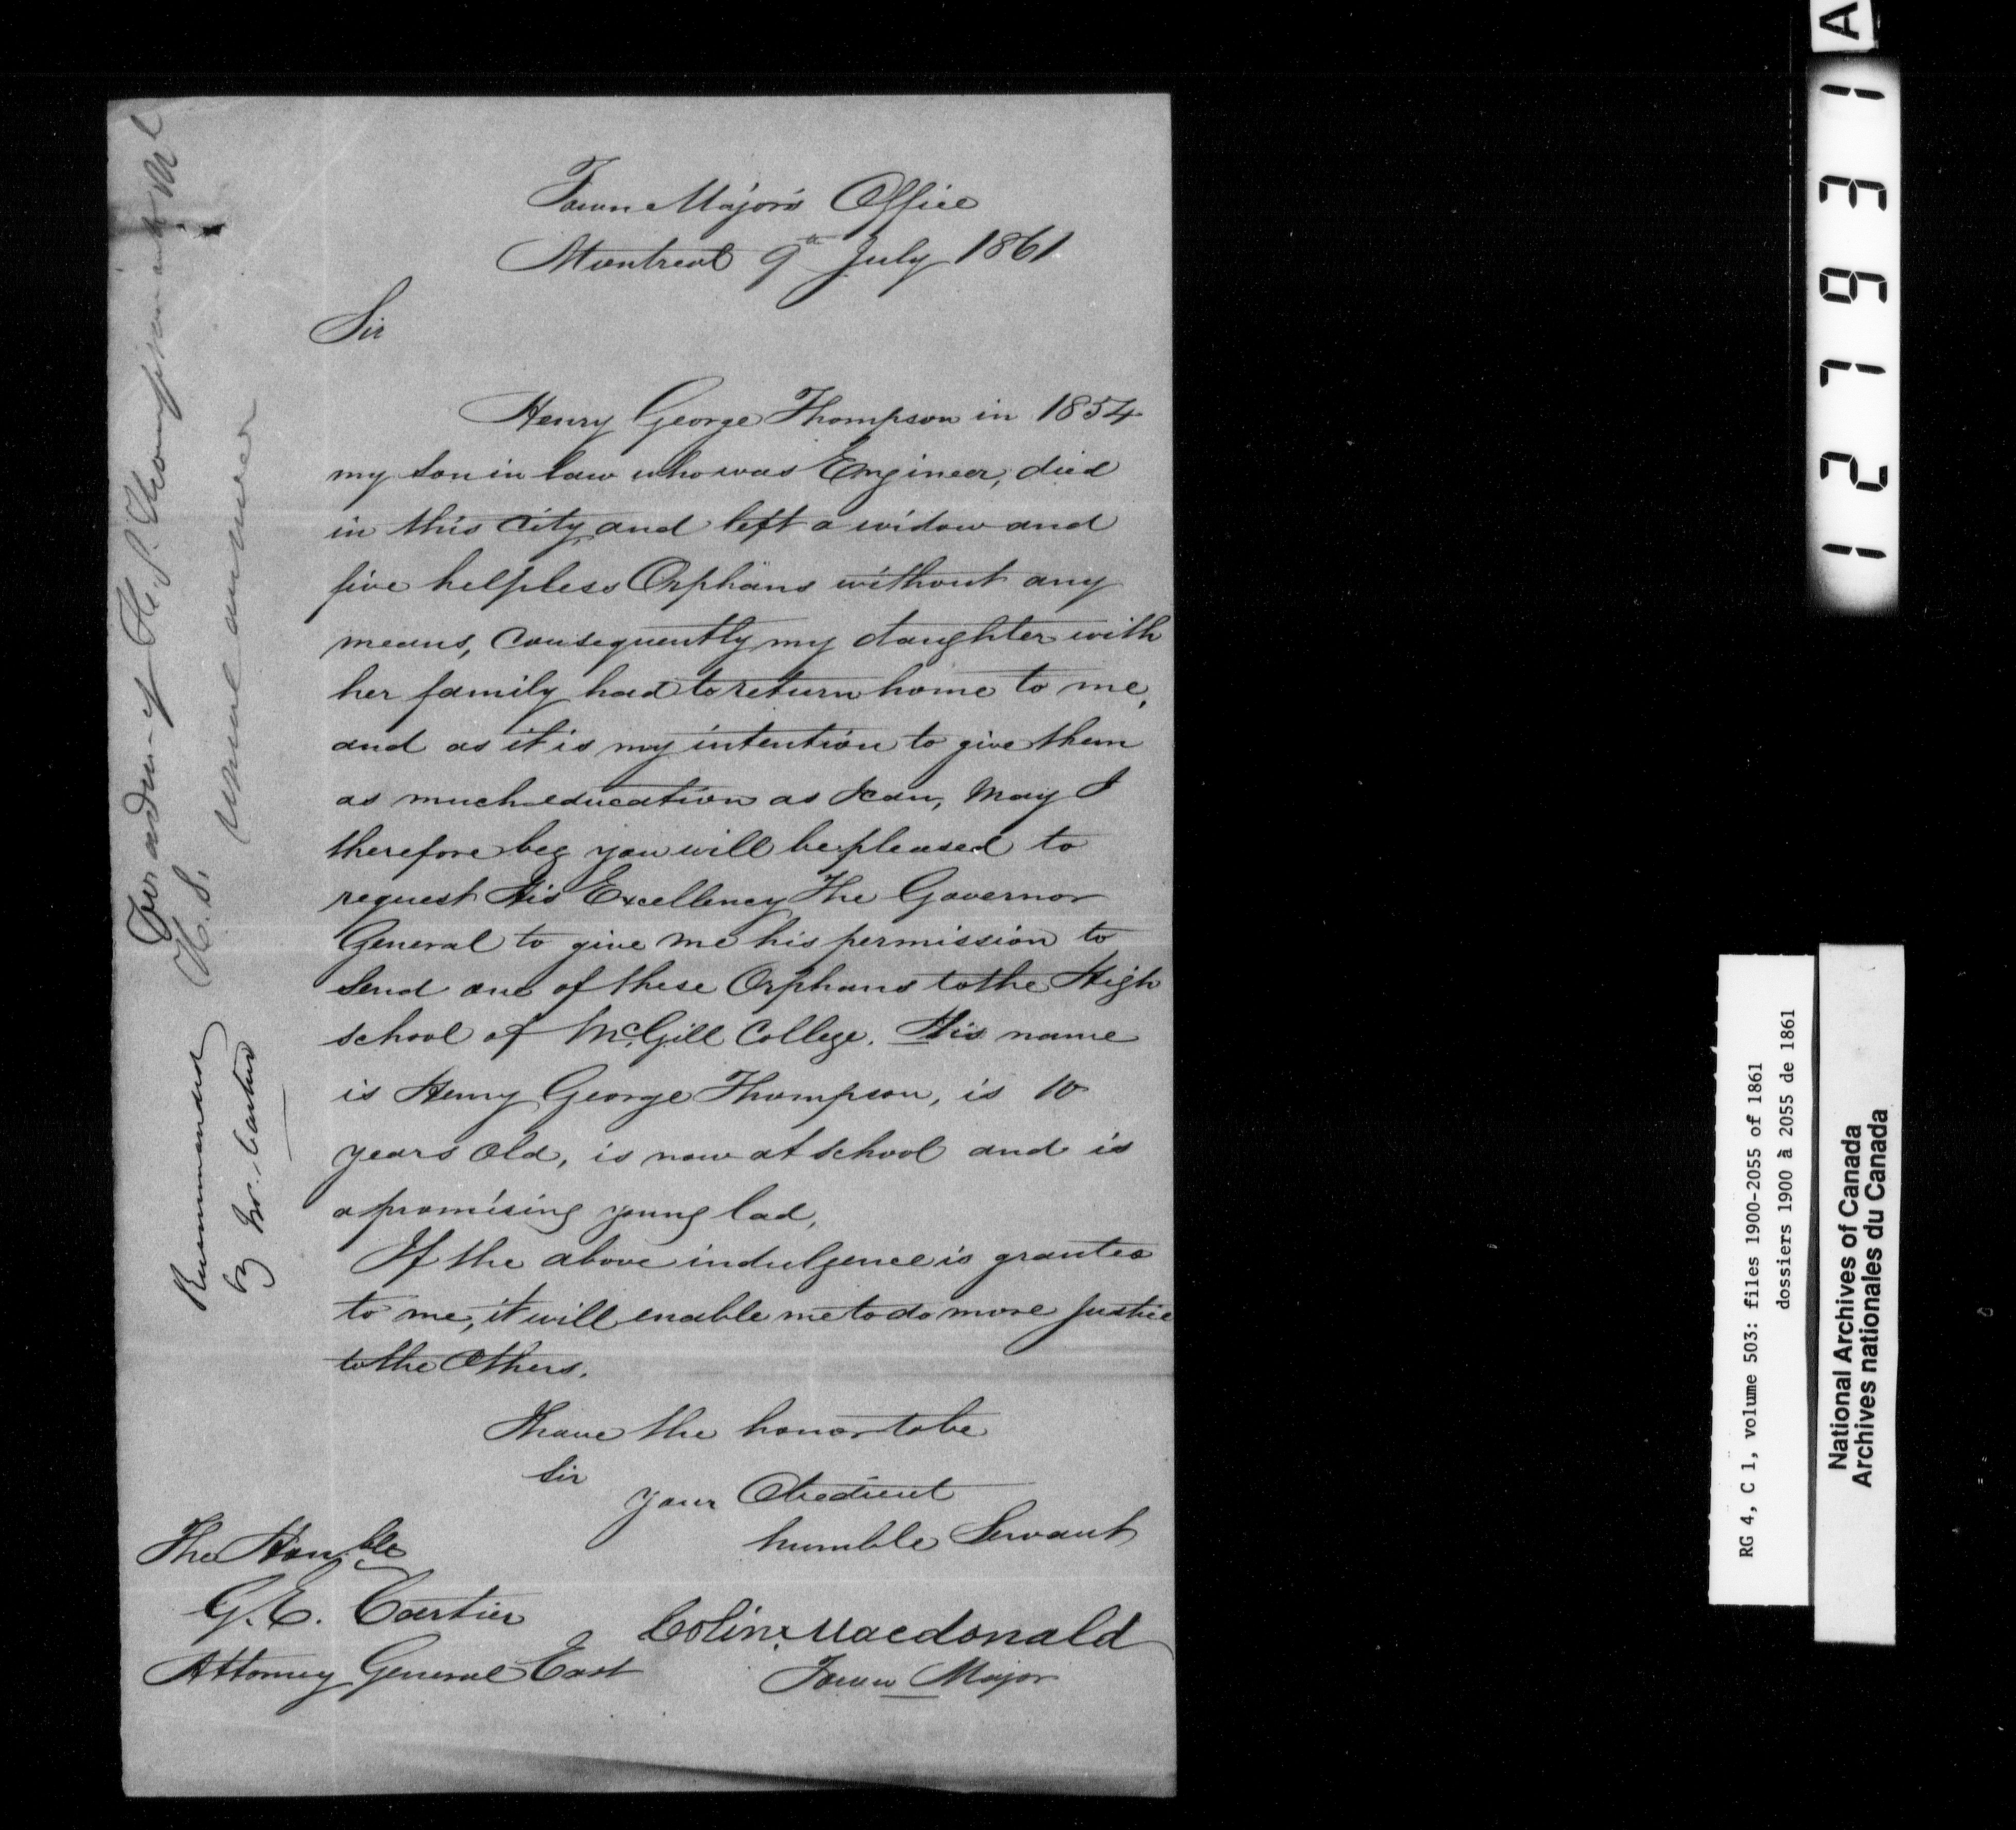 Town Major's Office
Montreal 9th July 1861
Sir
Henry George Thompson in 1854
my son in law who was Engineer, died
in this City and left a widow and
five helpless Orphans without any
means, Consequently my daughter with
her family had to return home to me,
and as it is my intention to give them
as much education as I can, may I
therefore beg you will be pleased to
request His Excellency The Governor
General to give me his permission to
send one of these Orphans to the High
school of McGill College. His name
is Henry George Thompson, is 10
years old, is now at school and is
a promising young lad,
If the above indulgence is granted
to me, it will enable me to do more Justice
to the Others.
I have the honor to be
Sir
your Obedient
humble Servant
Colin Macdonald
Town Major
The Hon.ble
G. E. Cartier
Attorney General East
For admn of H. G. Thompson into Ml
H. S.
Usual answer
Recommended
by Mr. Cartier
A
127931
RG 4, C 1, volume 503: files 1900-2055 of 1861
dossiers 1900 à 2055 de 1861
National Archives of Canada
Archives nationales du Canada